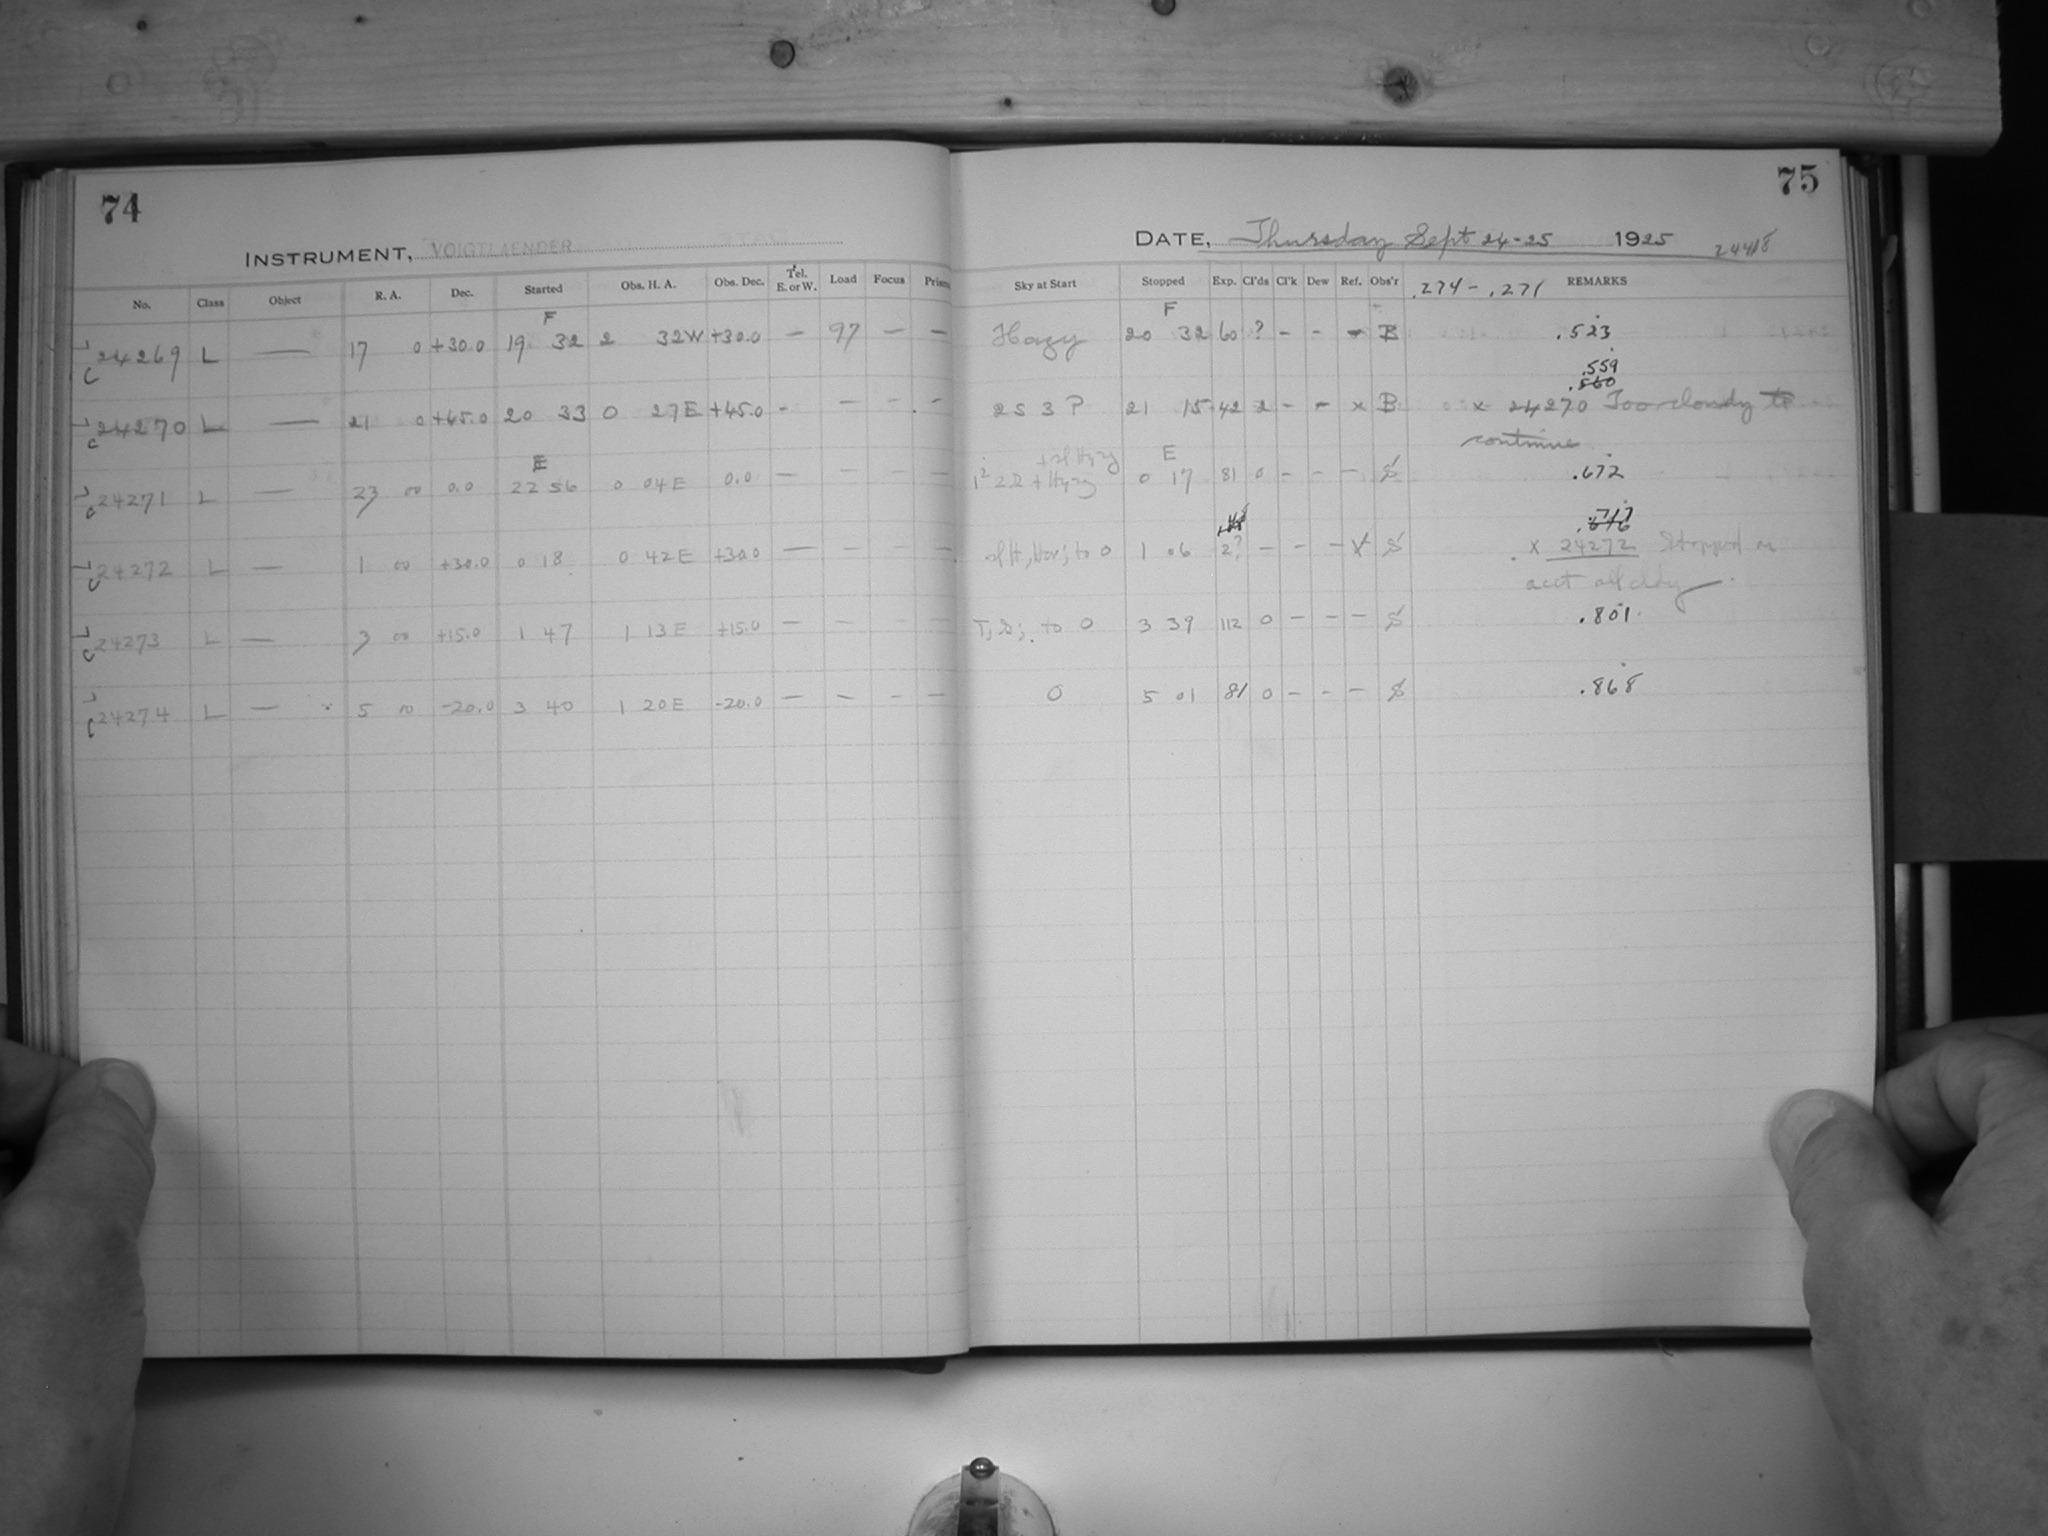 74
INSTRUMENT, VOIGTLAENDER
No. Class Object R. A. Dec. Started Obs. H. A. Obs. Dec. Tel. E. or W. Load Focus Prism
F
24269 L — 17 0 +30.0 19 32 2 32W +30.0 — 97 — —
24270 L — 21 0 +45.0 20 33 0 27E +45.0 - — — -
E
24271 L — 23 00 0.0 22 56 0 04E 0.0 — — — —
24272 L — 1 00 +30.0 0 18 0 42E +30.0 — — — —
24273 L — 3 00 +15.0 1 47 1 13E +15.0 — — — —
24274 L — 5 00 -20.0 3 40 1 20E -20.0 — — — —
75
DATE, Thursday Sept 24-25 1925 24418
Sky at Start Stopped Exp. Cl'ds Cl'k Dew Ref. Obs'r .274 - .271 REMARKS
F
Hazy 20 32 60 ? - - - B .523
.559
.560
2 S 3 P 21 15 42 2 - - x B x 24270 Too cloudy to
continue
E
0 17 81 0 - - - S .672
.717
to 0 1 06 2? — - - X S x 24272 Stopped on
acct all cldy
to 0 3 39 112 0 - - - S .801
0 5 01 81 0 - - - S .868